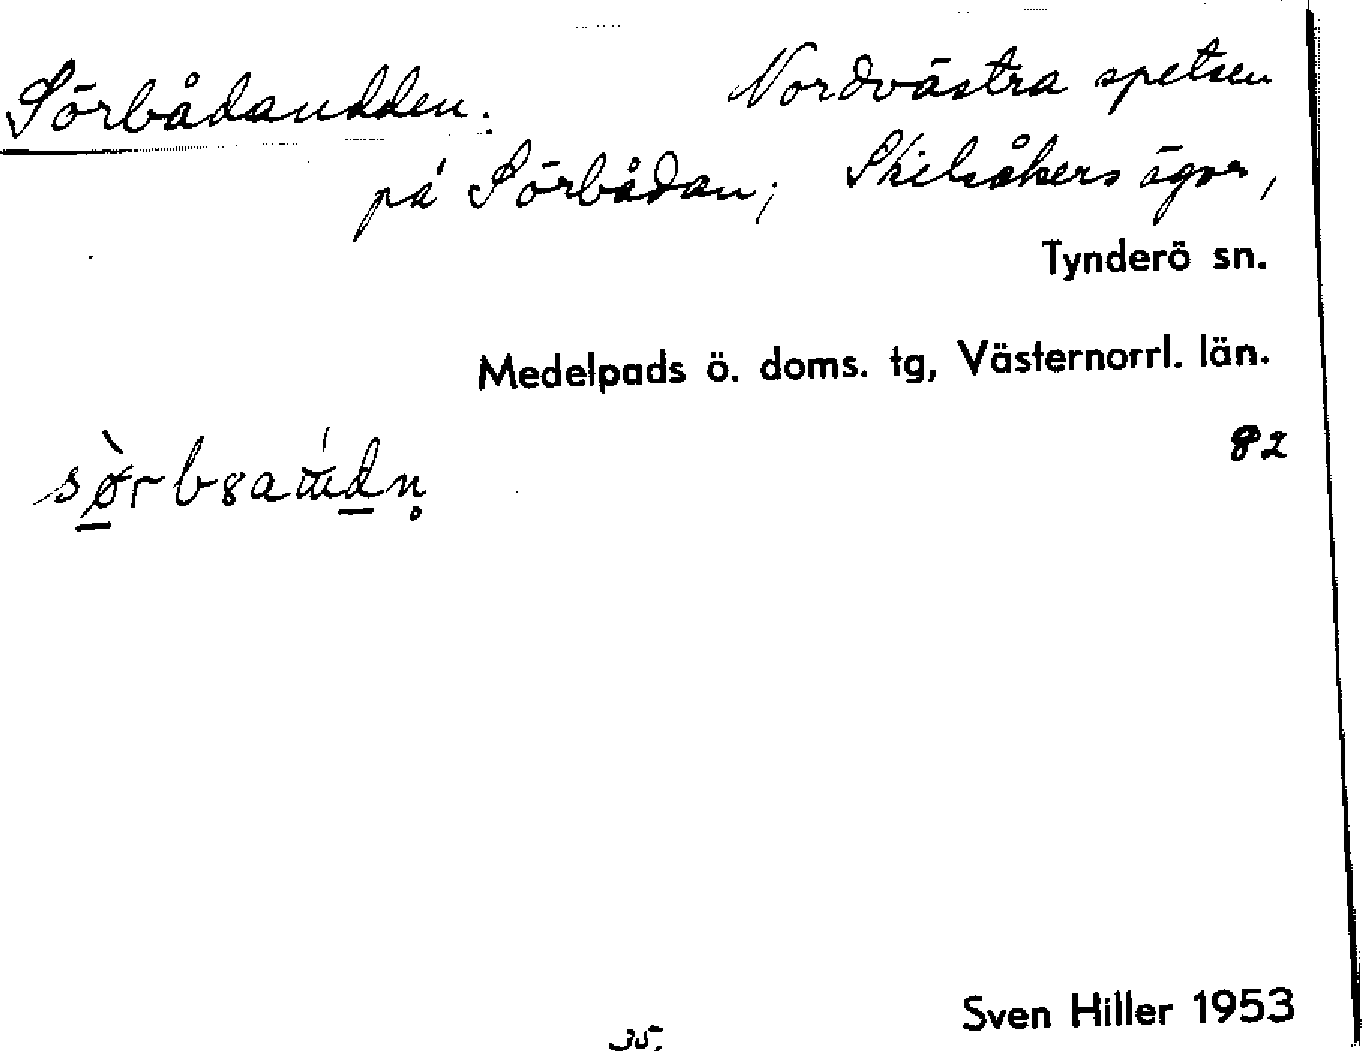 Sörbådaudden. Nordvästra spetsen
på Sörbådan, Skilsåkers ägor,
Tynderö sn.
Medelpads ö. doms. tg, Västernorrl. län.
82
Sven Hiller 1953
35.